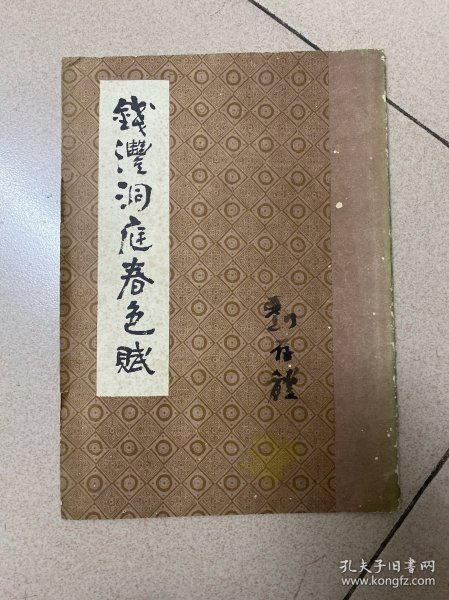 錢灃洞庭春色賦
孔夫子旧书网
www.kongfz.com